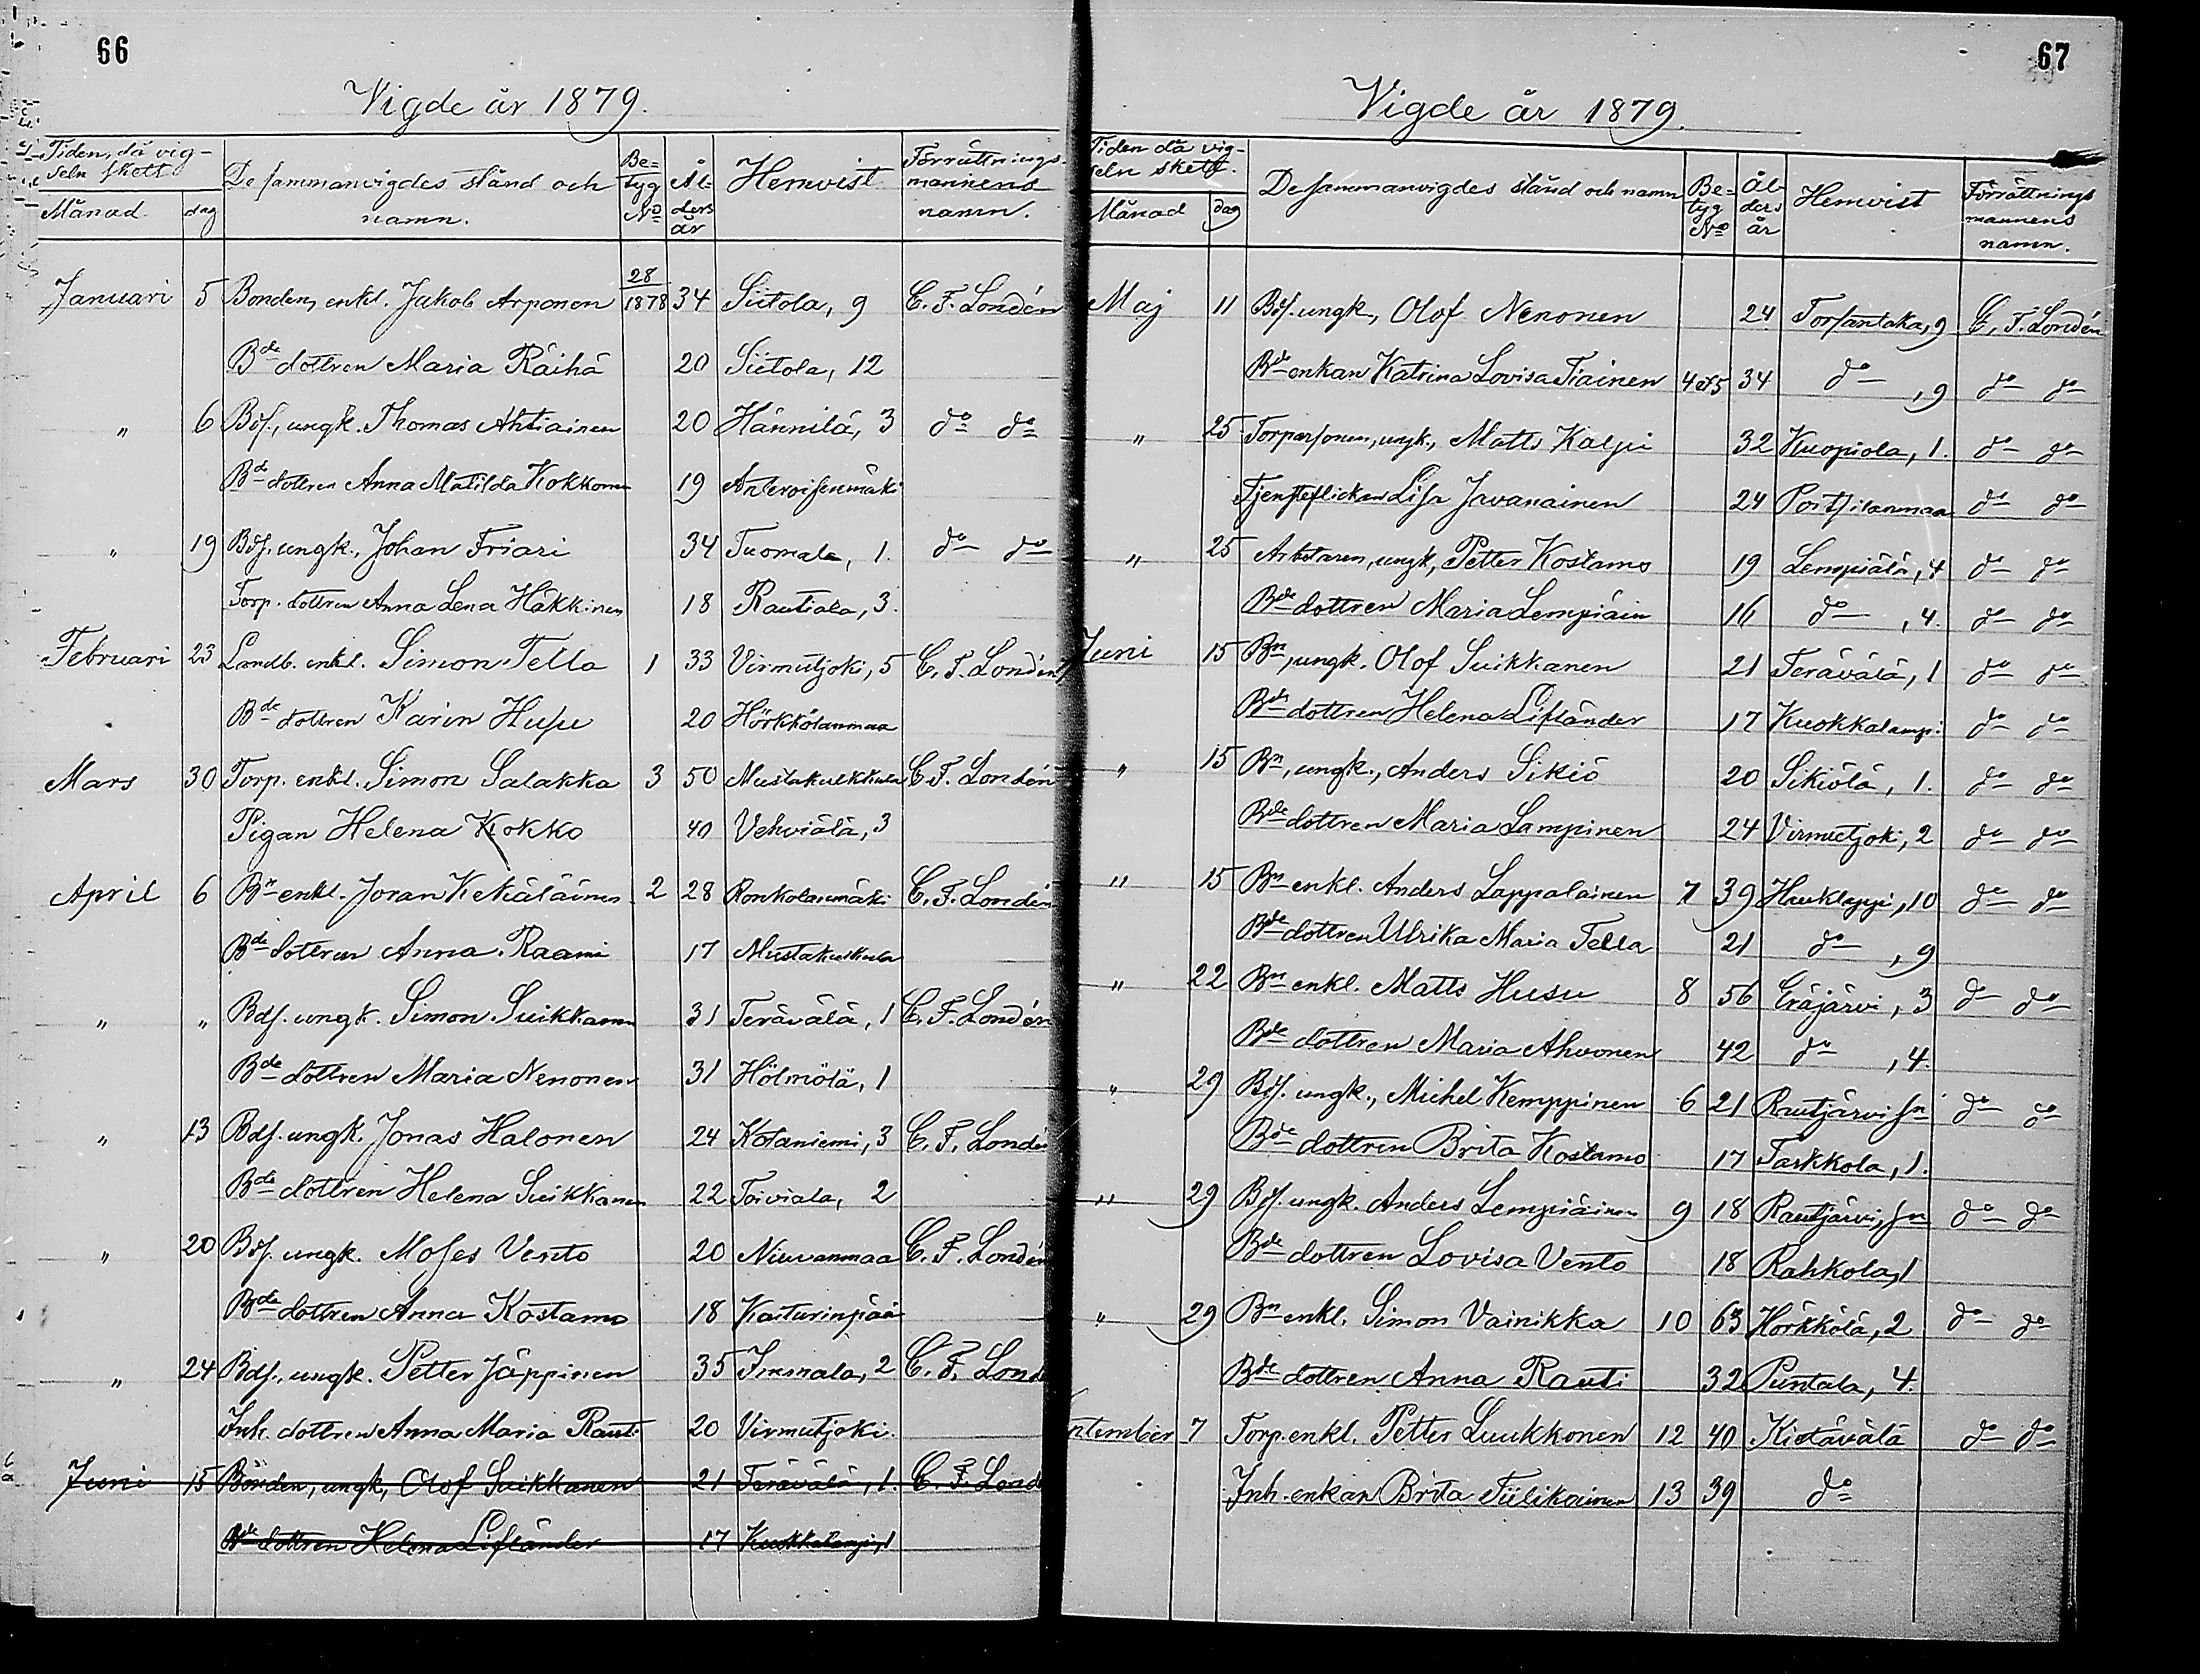 66
Vigde år 1879.
Tiden, då vigseln skett
Månad. dag
De sammanvigdes stånd och namn.
Betyg No
Ålders år
Hemvist
Förrättningsmannens namn.
Januari 5 Bonden, enkl. Jakob Arponen 28/1878 34 Siitola, 9 C. F. Londén
Bde dottren Maria Räihä 20 Siitola, 12
" 6 Bds., ungk. Thomas Ahtiainen 20 Hännilä, 3 do do
Bde dottren Anna Matilda Kokkonen 19 Anteroisenmäki
" 19 Bds. ungk., Johan Friari 34 Tuomala, 1. do do
Torp. dottren Anna Lena Häkkinen 18 Rautiala, 3.
Februari 23 Landb. enkl. Simon Tella 1 33 Virmutjoki, 5 C. F. Londén
Bde dottren Karin Husu 20 Hörkkölanmaa
Mars 30 Torp. enkl. Simon Salakka 3 50 Mustakulkkula C. F. Londén
Pigan Helena Kokko 40 Vehviälä, 3
April 6 Bn enkl. Joran Kekäläinen 2 28 Ronkolanmäki C. F. Londén
Bde dottren Anna Raami 17 Mustakulkula
" " Bds. ungk. Simon Suikkanen 31 Terävälä, 1 C. F. Londén
Bde dottren Maria Nenonen 31 Hölmölä, 1
" 13 Bds. ungk. Jonas Halonen 24 Kotaniemi, 3 C. F. Londén
Bde dottren Helena Suikkanen 22 Toiviala, 2
" 20 Bds. ungk. Moses Vento 20 Niuvanmaa C. F. Londén
Bde dottren Anna Kostamo 18 Kaiturinpää
" 24 Bds., ungk. Petter Jäppinen 35 Immala, 2 C. F. Lond
Inh. dottren Anna Maria Rauti 20 Virmutjoki.
Juni 15 Bonden, ungk, Olof Suikkanen 21 Terävälä, 1. C. F. Lond
Bde dottren Helena Lifländer 17 Kuokkalampi, 1
67
Vigde år 1879.
Tiden då vigseln skett.
Månad dag
De sammanvigdes stånd och namn
Betyg No
Ålders år
Hemvist
Förrättningsmannens namn.
Maj 11 Bds. ungk, Olof Nenonen 24 Torsantaka, 9 C. F. Londén
Bde enkan Katrina Lovisa Tiainen 4 o 5 34 do , 9 do do
" 25 Torparsonen, ungk., Matts Kalpi 32 Kuopiola, 1. do do
Tjensteflickan Lisa Javanainen 24 Portsilanmaa do do
" 25 Arbetaren, ungk, Petter Kostamo 19 Lempiälä, 4 do do
Bde dottren Maria Lempiäin 16 do , 4. do do
Juni 15 Bn, ungk. Olof Suikkanen 21 Terävälä, 1 do do
Bde dottren Helena Lifländer 17 Kuokkalampi do do
" 15 Bn, ungk., Anders Sikiö 20 Sikiölä, 1. do do
Bde dottren Maria Lampinen 24 Virmutjoki, 2 do do
" 15 Bn enkl. Anders Lappalainen 7 39 Haukloppi, 10 do do
Bde dottren Ulrika Maria Tella 21 do , 9
" 22 Bn enkl. Matts Husu 8 56 Eräjärvi, 3 do do
Bde dottren Maria Ahvonen 42 do , 4.
" 29 Bds. ungk., Michel Kemppinen 6 21 Rautjärvi sn do do
Bde dottren Brita Kostamo 17 Tarkkola, 1.
" 29 Bds. ungk. Anders Lempiäinen 9 18 Rautjärvi, sn do do
Bde dottren Lovisa Vento 18 Rahkola, 1
" 29 Bn enkl. Simon Vainikka 10 63 Hörkkölä, 2 do do
Bde dottren Anna Rauti 32 Puntala, 4.
ntember 7 Torp. enkl. Petter Luukkonen 12 40 Kietävälä do do
Inh. enkan Brita Tiilikainen 13 39 do